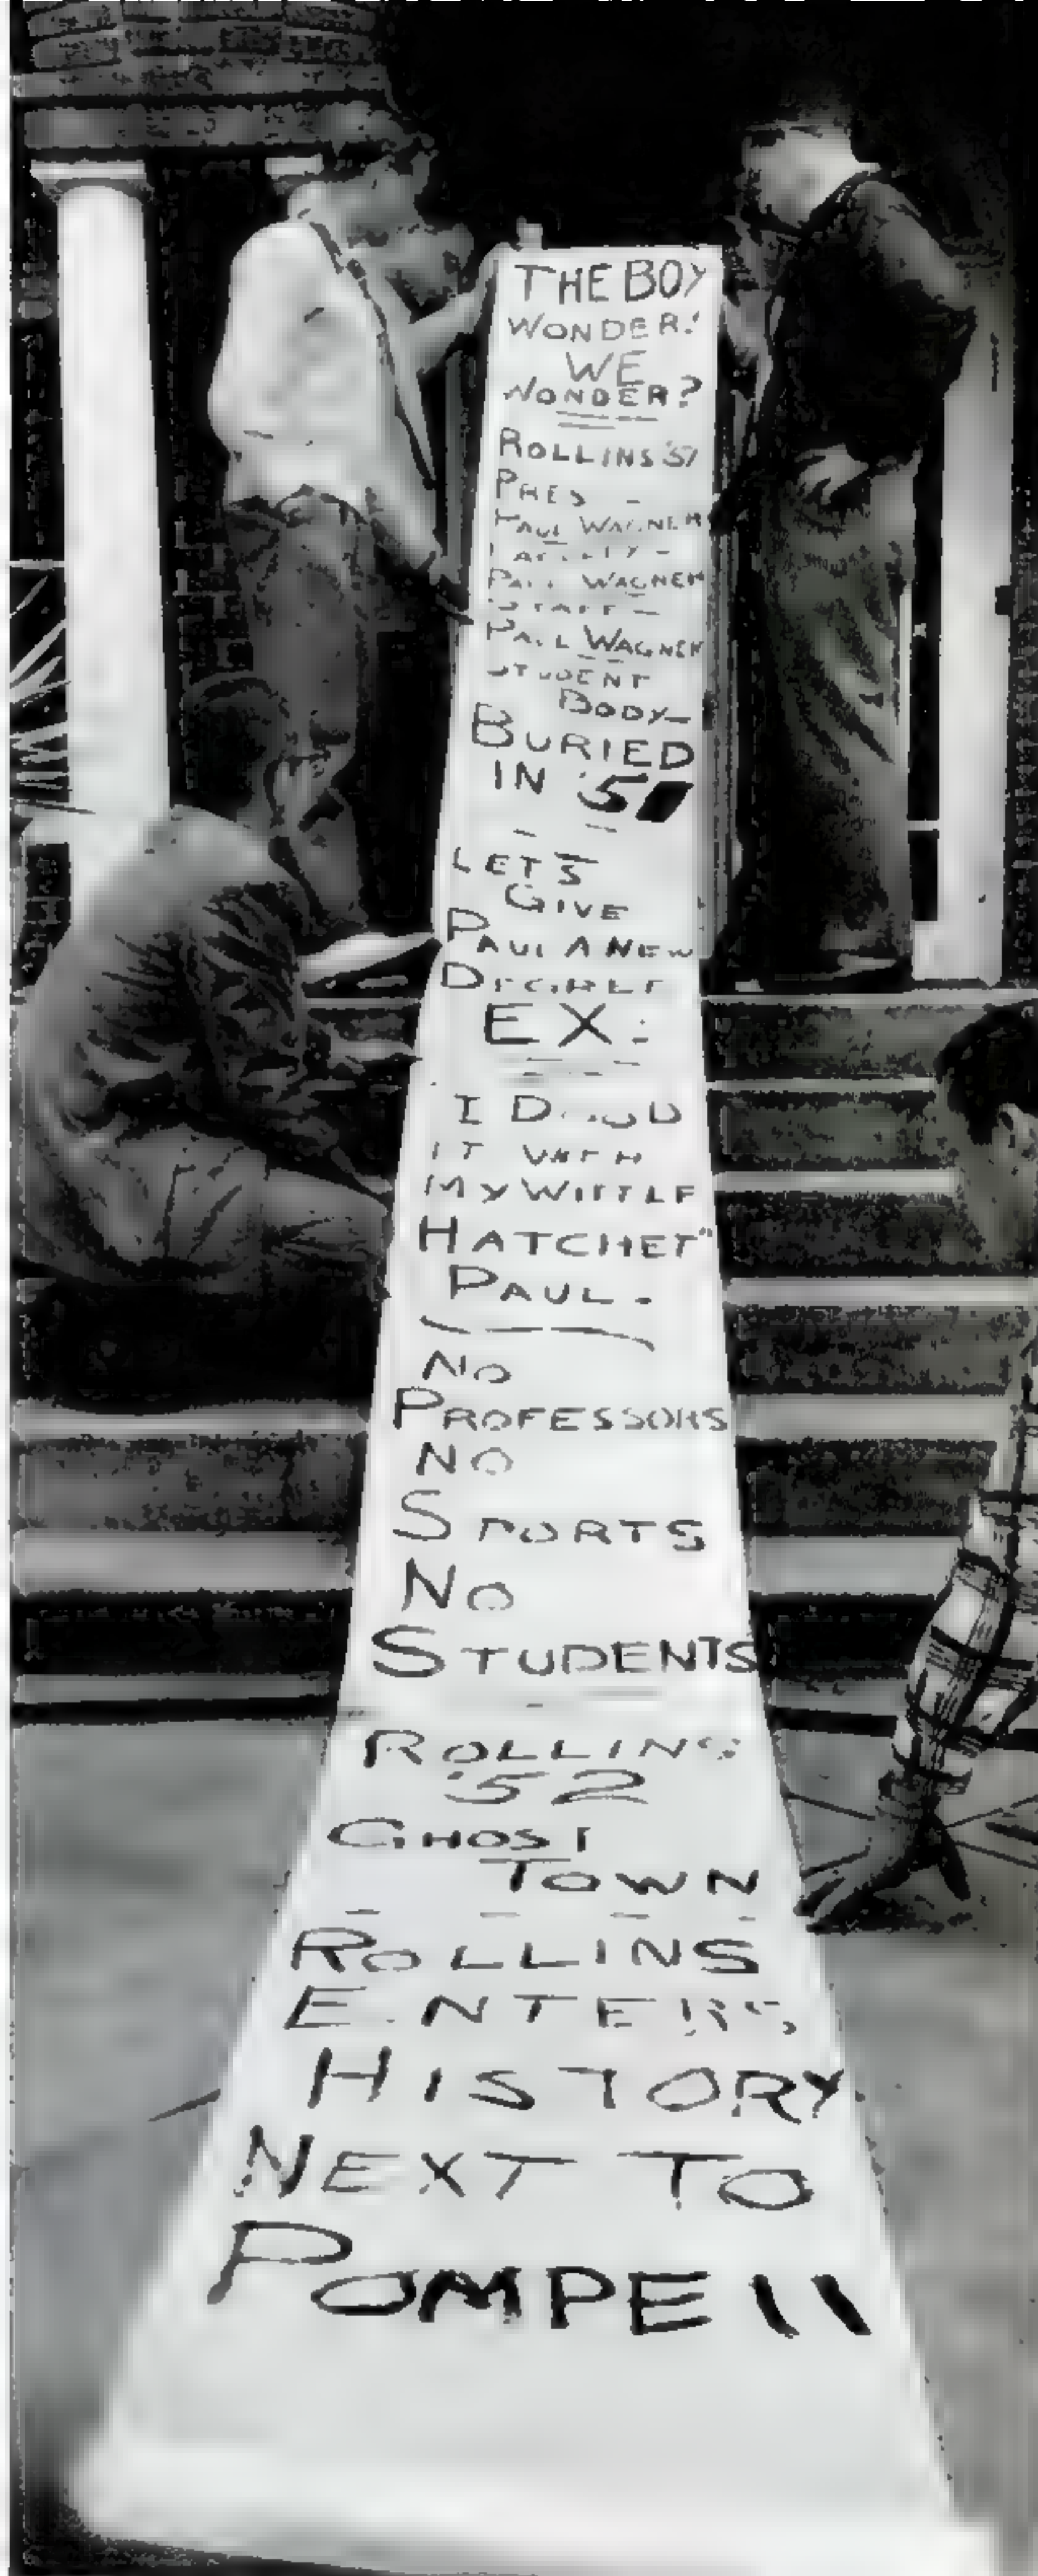 THE BOY
WONDER!
WE
WONDER?
ROLLINS '51
PRES -
PAUL WAGNER
FACULTY -
PAUL WAGNER
STAFF -
PAUL WAGNER
STUDENT
BODY -
BURIED
IN '51
LET'S
GIVE
PAUL A NEW
DEGREE
EX:
I
IT WITH
MY WITTLE
HATCHET"
PAUL.
NO
PROFESSORS
NO
SPORTS
NO
STUDENTS
ROLLINS
'52
GHOST
TOWN
ROLLINS
ENTERS
HISTORY
NEXT TO
POMPEII